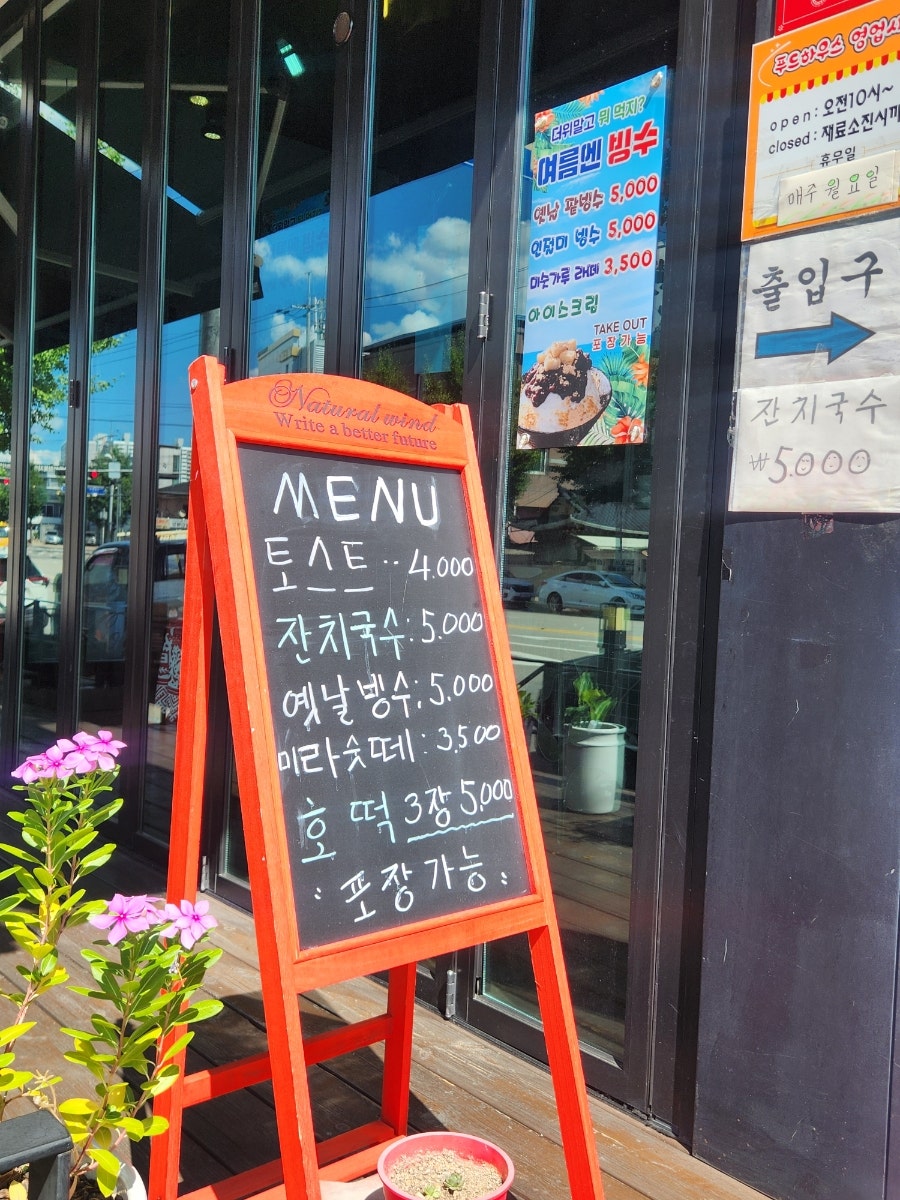 Natural wind
Write a better future
MENU
토스트 ·· 4.000
잔치국수: 5.000
옛날빙수: 5.000
미라숫떼: 3.500
호떡 3장 5,000
포장가능
더위말고 뭐 먹지?
여름엔 빙수
옛날 팥빙수 5,000
인절미 빙수 5,000
미숫가루 라떼 3,500
아이스크림
TAKE OUT
포장가능
푸드하우스 영업시
open : 오전10시~
closed : 재료소진시까
휴무일
매주 월요일
출입구
잔치국수
₩5.000